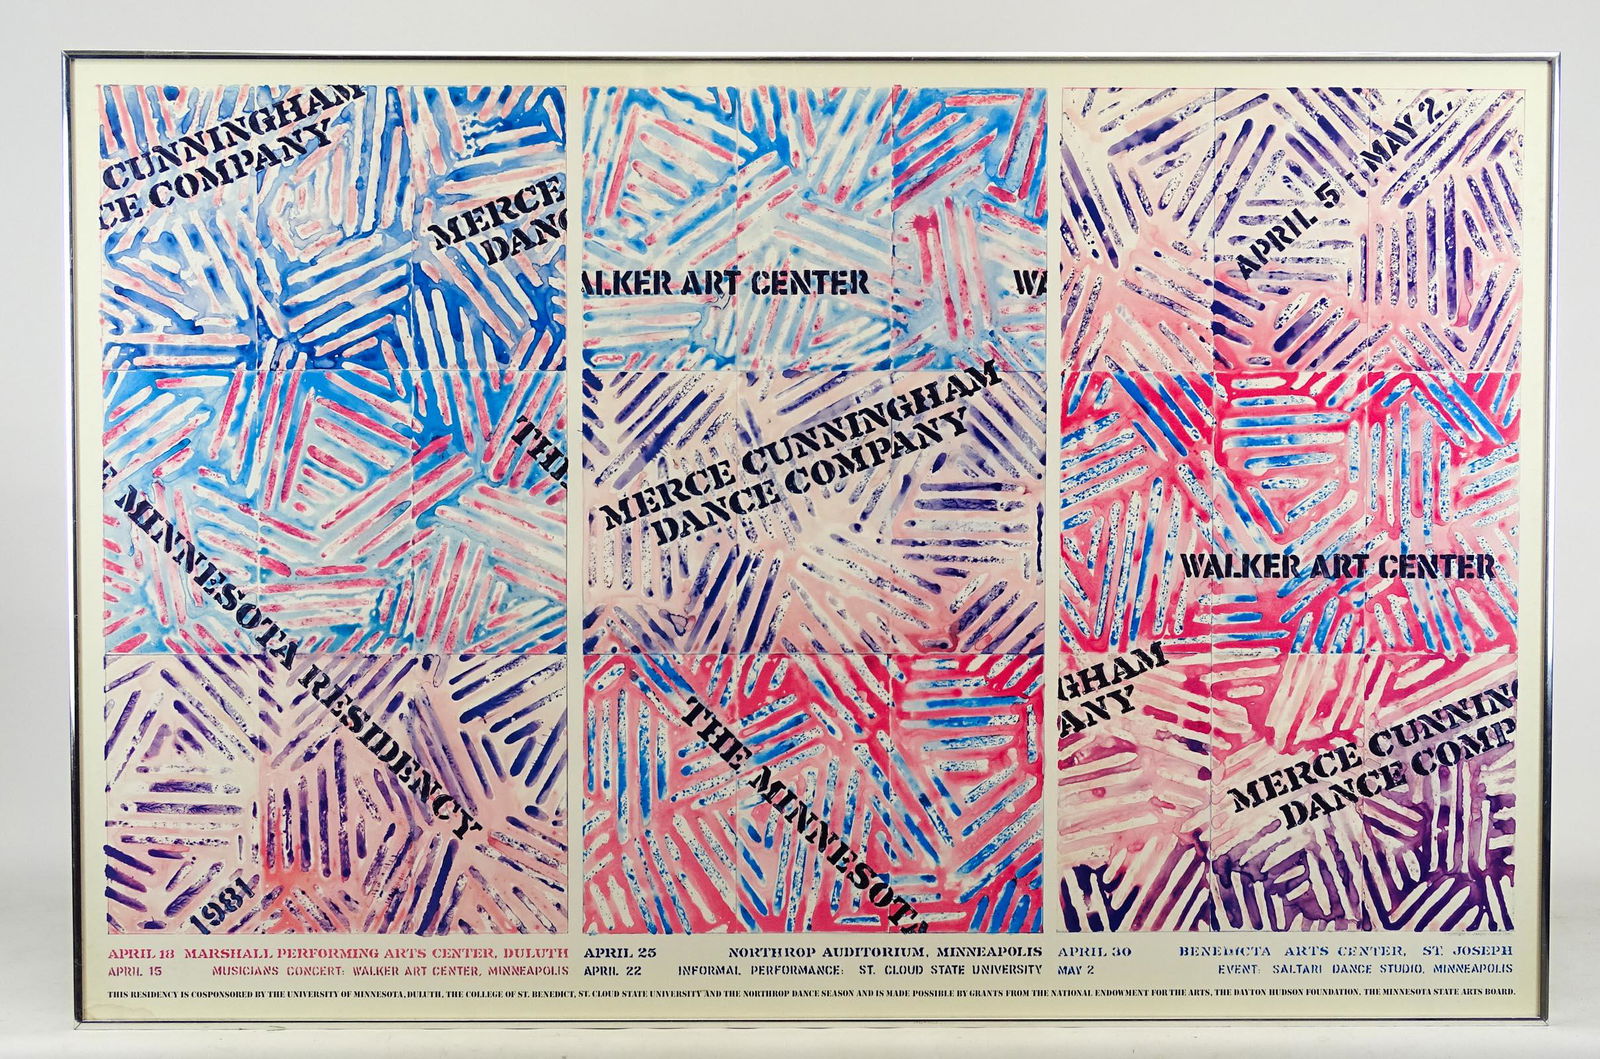 CUNNINGHAM
CE COMPANY
MERCE
DANC
ALKER ART CENTER
WA
APRIL 5 - MAY 2,
THE
E MINNESOTA RESIDENCY
1981
MERCE CUNNINGHAM
DANCE COMPANY
THE MINNESOTA
WALKER ART CENTER
GHAM
ANY
MERCE CUNNING
DANCE COMP
APRIL 18 MARSHALL PERFORMING ARTS CENTER, DULUTH
APRIL 15 MUSICIANS CONCERT: WALKER ART CENTER, MINNEAPOLIS
APRIL 25 NORTHROP AUDITORIUM, MINNEAPOLIS
APRIL 22 INFORMAL PERFORMANCE: ST. CLOUD STATE UNIVERSITY
APRIL 30 BENEDICTA ARTS CENTER, ST. JOSEPH
MAY 2 EVENT: SALTARI DANCE STUDIO, MINNEAPOLIS
THIS RESIDENCY IS COSPONSORED BY THE UNIVERSITY OF MINNESOTA, DULUTH, THE COLLEGE OF ST. BENEDICT, ST. CLOUD STATE UNIVERSITY AND THE NORTHROP DANCE SEASON AND IS MADE POSSIBLE BY GRANTS FROM THE NATIONAL ENDOWMENT FOR THE ARTS, THE DAYTON HUDSON FOUNDATION, THE MINNESOTA STATE ARTS BOARD.